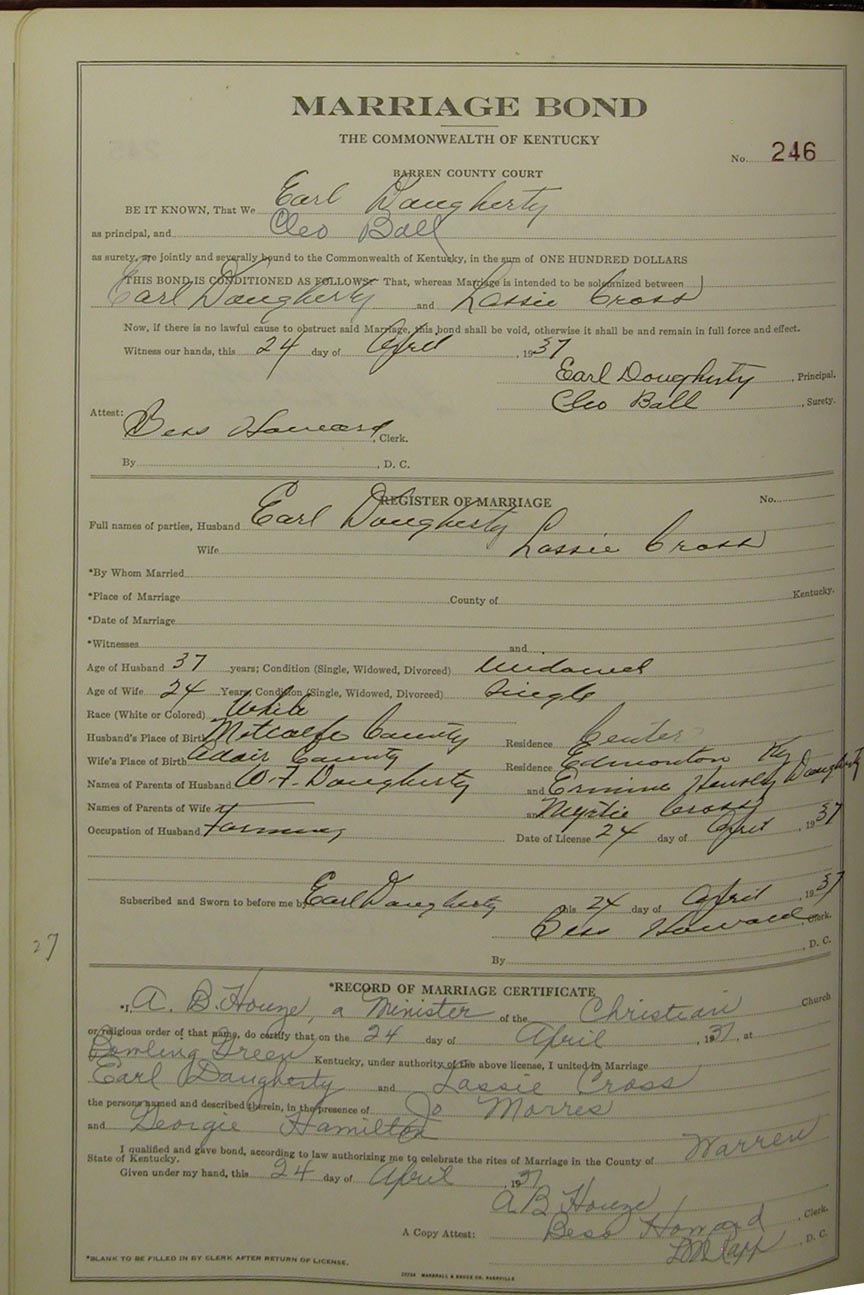 MARRIAGE BOND
THE COMMONWEALTH OF KENTUCKY
No. 246
BARREN COUNTY COURT
BE IT KNOWN, That We Earl Daugherty
as principal, and Cleo Ball
as surety, are jointly and severally bound to the Commonwealth of Kentucky, in the sum of ONE HUNDRED DOLLARS
THIS BOND IS CONDITIONED AS FOLLOWS: That, whereas Marriage is intended to be solemnized between
Earl Daugherty and Lassie Cross
Now, if there is no lawful cause to obstruct said Marriage, this bond shall be void, otherwise it shall be and remain in full force and effect.
Witness our hands, this 24 day of April, 1937
Earl Dougherty, Principal.
Cleo Ball, Surety.
Attest:
Bess Howard, Clerk.
By , D. C.
REGISTER OF MARRIAGE No.
Full names of parties, Husband Earl Dougherty
Wife Lassie Cross
*By Whom Married
*Place of Marriage County of Kentucky.
*Date of Marriage
*Witnesses and
Age of Husband 37 years; Condition (Single, Widowed, Divorced) Widowed
Age of Wife 24 Years; Condition (Single, Widowed, Divorced) Single
Race (White or Colored) White
Husband's Place of Birth Metcalfe County Residence Center
Wife's Place of Birth Adair County Residence Edmonton Ky
Names of Parents of Husband W. F. Dougherty and Ermine Daugherty
Names of Parents of Wife and Myrtie Cross
Occupation of Husband Farming Date of License 24 day of April, 1937
Subscribed and Sworn to before me by Earl Daugherty this 24 day of April, 1937
Bess Howard, Clerk.
By , D. C.
27
*RECORD OF MARRIAGE CERTIFICATE
*I, A. B. Houze, a Minister of the Christian Church
or religious order of that name, do certify that on the 24 day of April, 1937, at
Bowling Green Kentucky, under authority of the above license, I united in Marriage
Earl Daugherty and Lassie Cross
the persons named and described therein, in the presence of Jo Morres
and Georgie Hamilton
I qualified and gave bond, according to law authorizing me to celebrate the rites of Marriage in the County of Warren
State of Kentucky.
Given under my hand, this 24 day of April, 1937
A B Houze
A Copy Attest: Bess Howard, Clerk.
, D. C.
*BLANK TO BE FILLED IN BY CLERK AFTER RETURN OF LICENSE.
MARSHALL & BRUCE CO. NASHVILLE